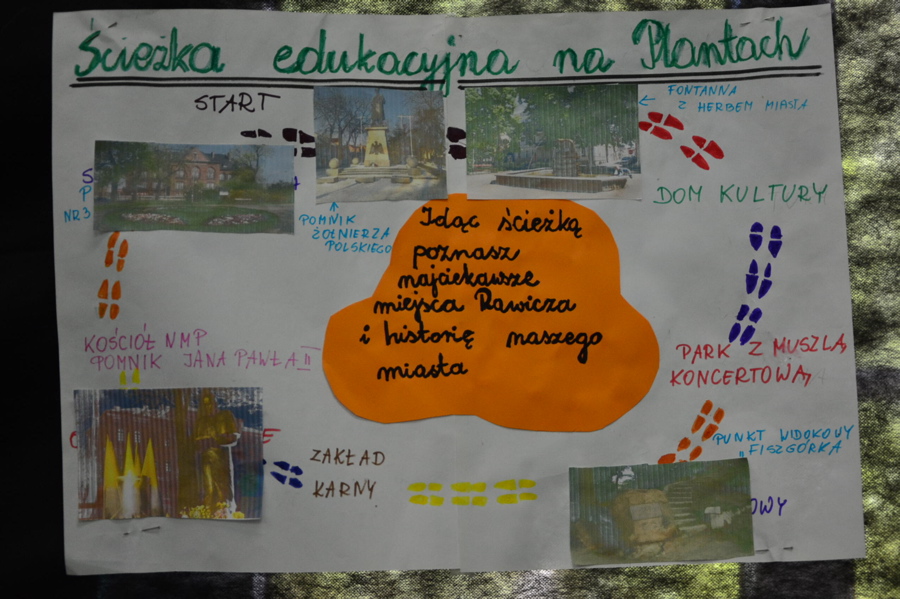 Ścieżka edukacyjna na Plantach
START
FONTANNA
Z HERBEM MIASTA
DOM KULTURY
S
P
NR 3
POMNIK
ŻOŁNIERZA
POLSKIEGO
Idąc ścieżką
poznasz
najciekawsze
miejsca Rawicza
i historię naszego
miasta
KOŚCIÓŁ NMP
POMNIK JANA PAWŁA II
PARK Z MUSZLĄ
KONCERTOWĄ
PUNKT WIDOKOWY
"FISZGÓRKA
ZAKŁAD
KARNY
OWY